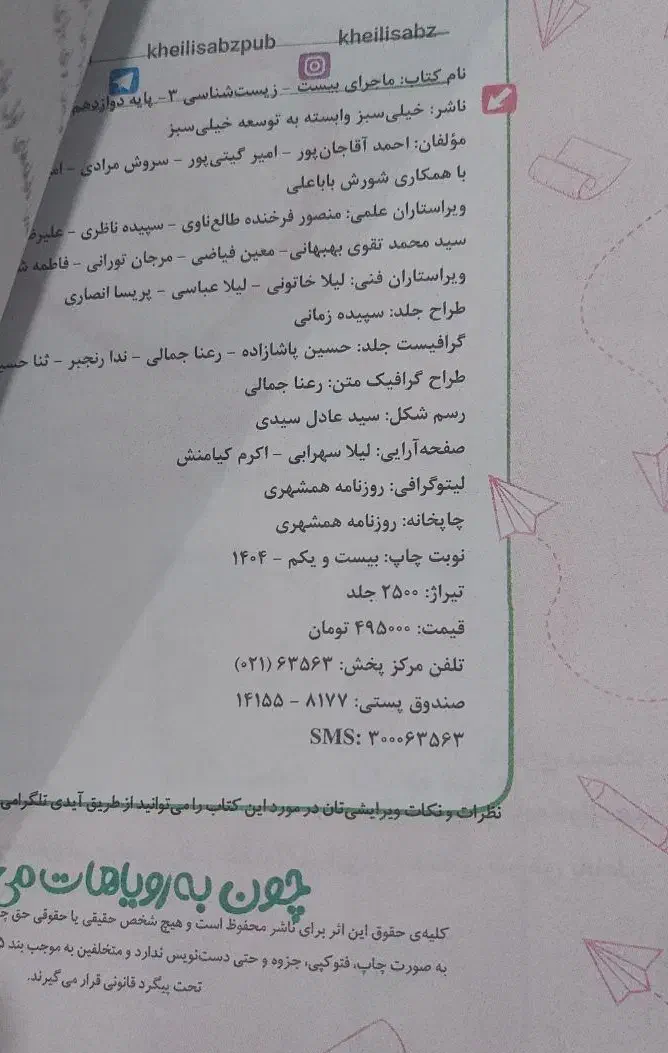 kheilisabzpub kheilisabz
نام کتاب: ماجرای بیست - زیست‌شناسی ۳- پایه دوازدهم
ناشر: خیلی‌سبز وابسته به توسعه خیلی‌سبز
مؤلفان: احمد آقاجان‌پور - امیر گیتی‌پور - سروش مرادی -
با همکاری شورش باباعلی
ویراستاران علمی: منصور فرخنده طالع‌ناوی - سپیده ناظری -
سید محمد تقوی بهبهانی- معین فیاضی - مرجان تورانی - فاطمه
ویراستاران فنی: لیلا خاتونی - لیلا عباسی - پریسا انصاری
طراح جلد: سپیده زمانی
گرافیست جلد: حسین پاشازاده - رعنا جمالی - ندا رنجبر - ثنا
طراح گرافیک متن: رعنا جمالی
رسم شکل: سید عادل سیدی
صفحه‌آرایی: لیلا سهرابی - اکرم کیامنش
لیتوگرافی: روزنامه همشهری
چاپخانه: روزنامه همشهری
نوبت چاپ: بیست و یکم - ۱۴۰۴
تیراژ: ۲۵۰۰ جلد
قیمت: ۴۹۵۰۰۰ تومان
تلفن مرکز پخش: ۶۳۵۶۳ (۰۲۱)
صندوق پستی: ۸۱۷۷ - ۱۴۱۵۵
SMS: ۳۰۰۰۶۳۵۶۳
نظرات و نکات ویرایشی‌تان در مورد این کتاب را می‌توانید از طریق آیدی تلگرامی
چون به رویاهات می
کلیه‌ی حقوق این اثر برای ناشر محفوظ است و هیچ شخص حقیقی یا حقوقی حق
به صورت چاپ، فتوکپی، جزوه و حتی دست‌نویس ندارد و متخلفین به موجب بند ۵
تحت پیگرد قانونی قرار می‌گیرند.